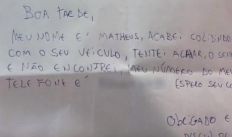 BOA TARDE,
MEU NOME É MATHEUS, ACABEI COLIDINDO
COM O SEU VEÍCULO, TENTEI
E NÃO ENCONTREI, MEU NÚMERO DO
TELEFONE É
(ESPERO SEU
OBRIGADO E